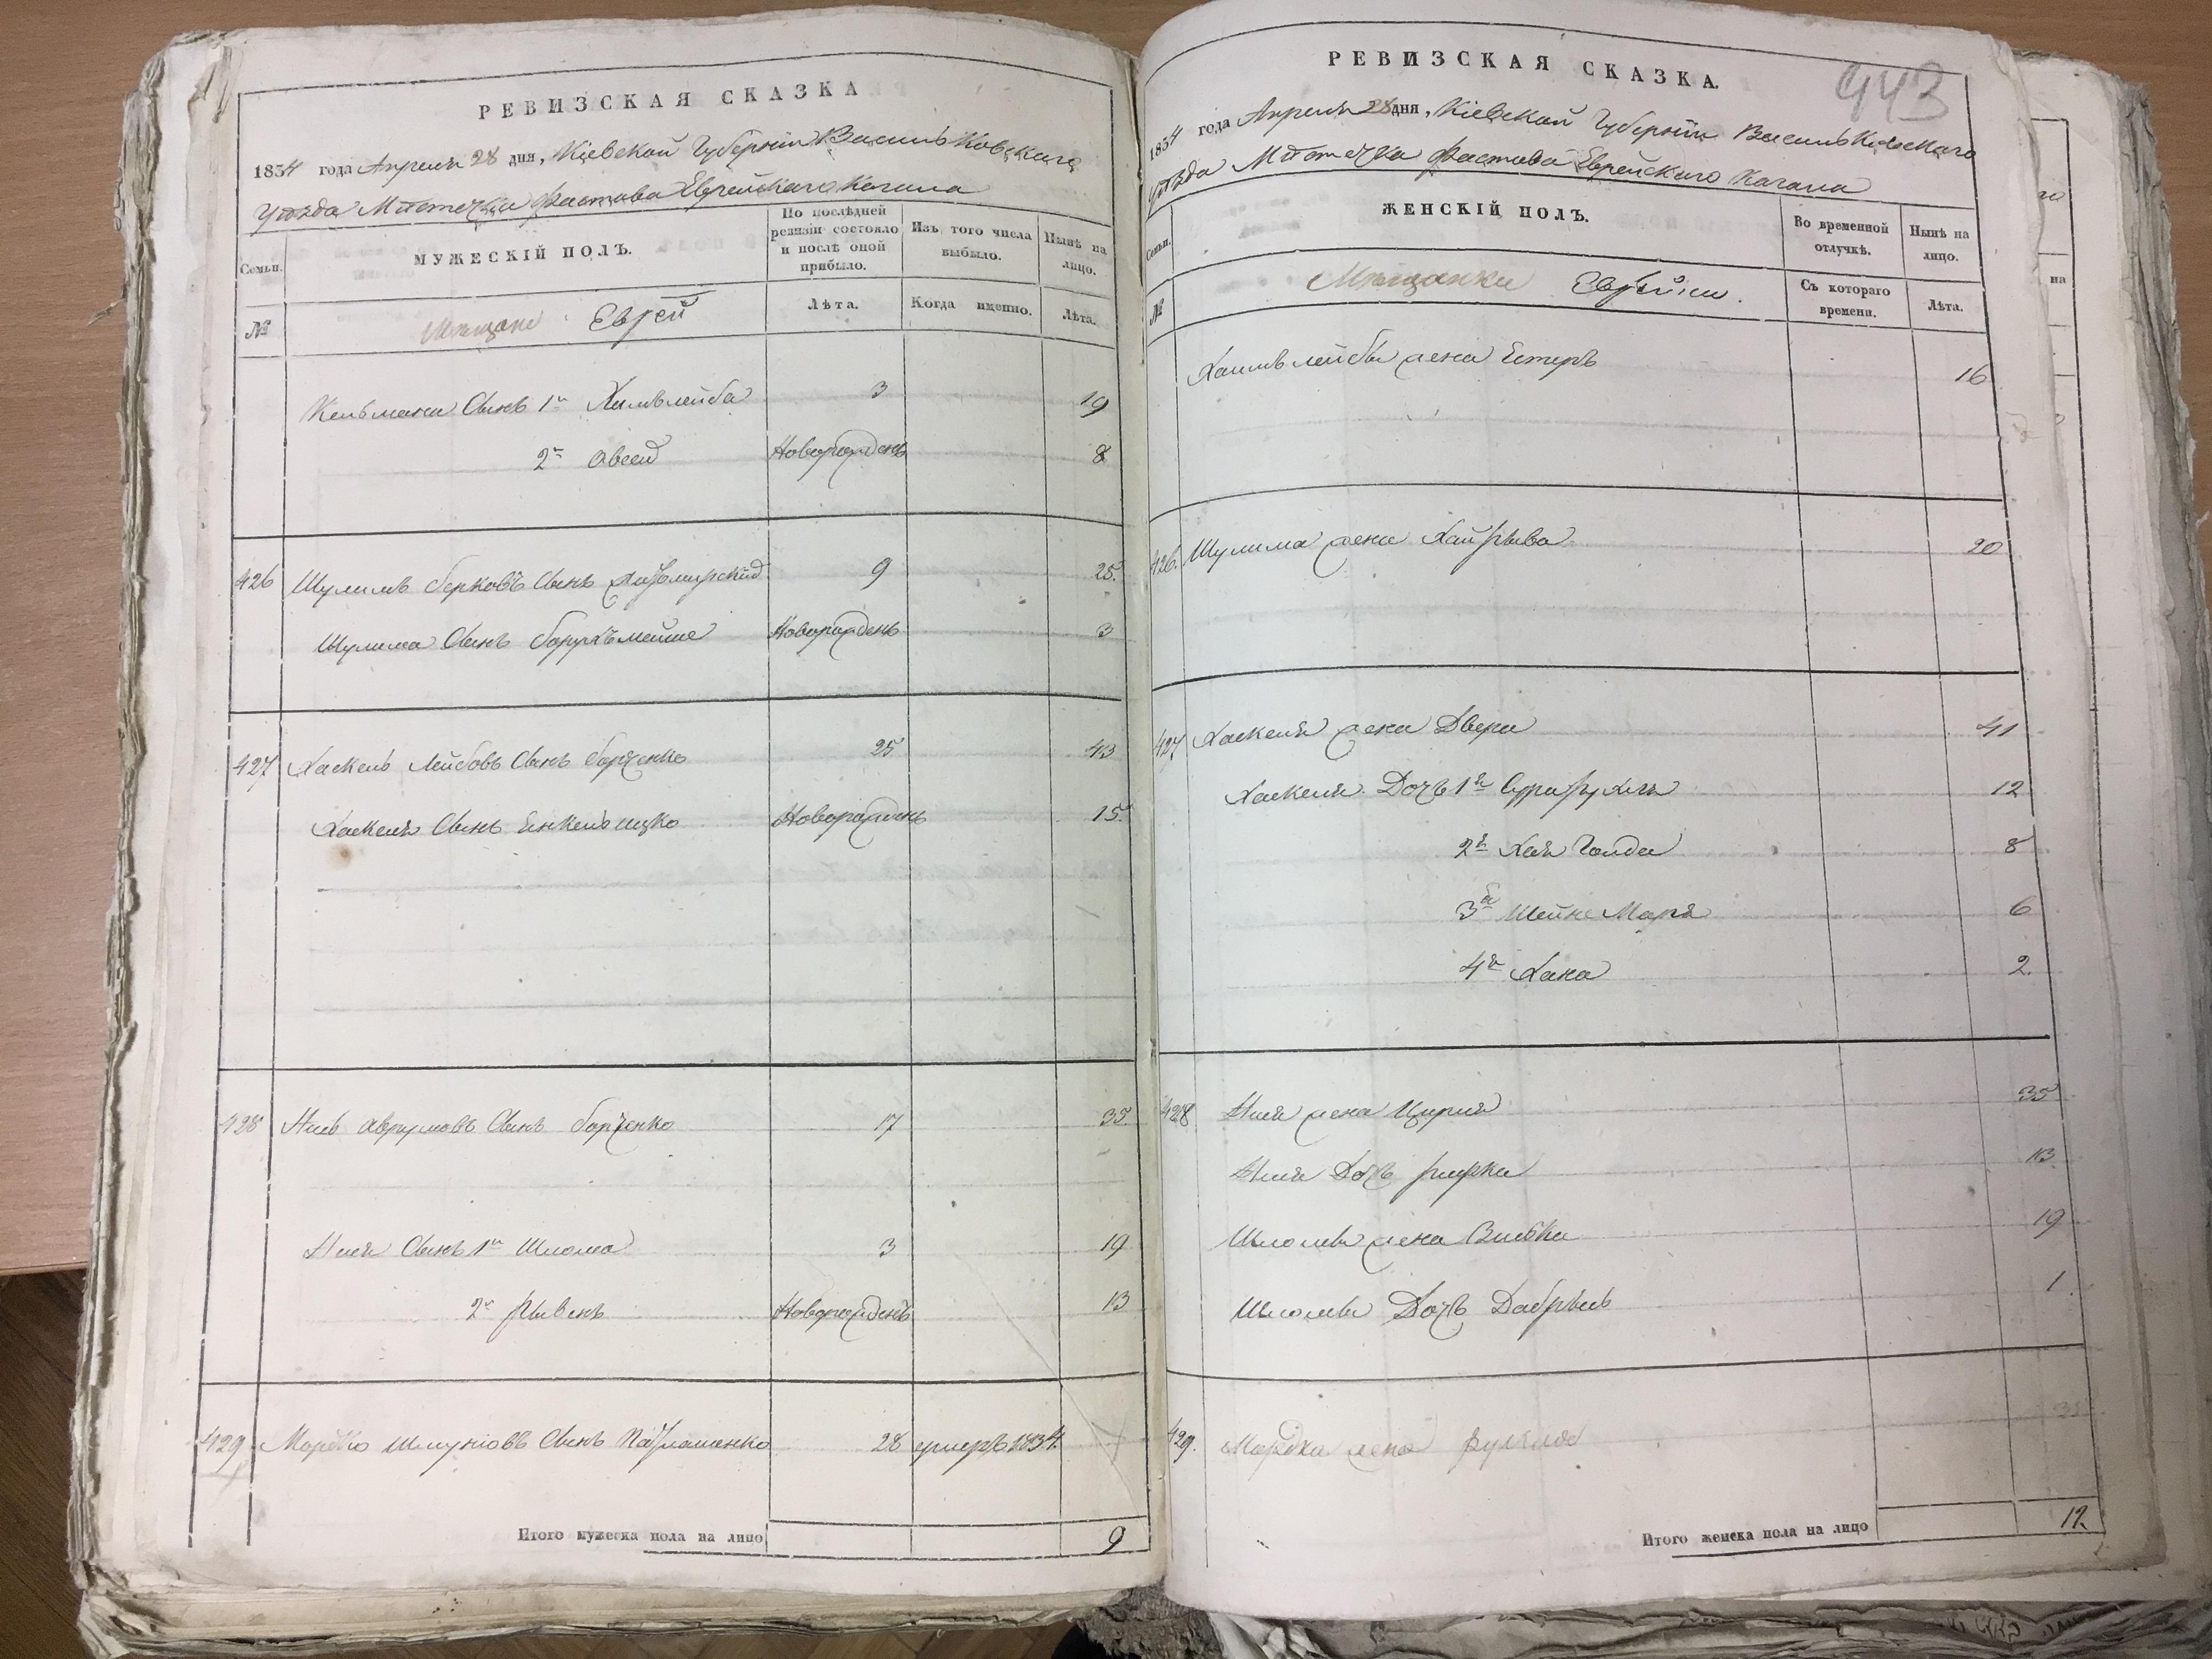 РЕВИЗСКАЯ СКАЗКА
1834 года Апреля 28 дня, Кіевской Губерніи Васильковскаго
Уѣзда Мѣстечка Фастова Еврейскаго Кагала
Семьи.
МУЖЕСКІЙ ПОЛЪ.
По послѣдней ревизіи состояло и послѣ оной прибыло.
Изъ того числа выбыло.
Нынѣ на лицо.
№
Мѣщане Еврей
Лѣта.
Когда именно.
Лѣта.
Кельмана Сынъ 1й Хаимълейба 3 19
2й Овсей Новорожденъ 8
426 Шулимъ Берковъ Сынъ Житомирскій 9 25.
Шулима Сынъ Борухъмейше Новорожденъ 3
427 Хаскель Лейбовъ Сынъ Борченко 25 43
Хаскеля Сынъ Енкельицко Новорожденъ 15.
428 Аврумовъ Сынъ Борченко 17 35.
Сынъ 1й Шлома 3 19
2й Рывенъ Новорожденъ 13
429 Мордко Шмуніовъ Сынъ 28 умеръ 1834.
Итого мужеска пола на лицо 9
РЕВИЗСКАЯ СКАЗКА.
443
1834 года Апреля 28 дня, Кіевской Губерніи Васильковскаго
Уѣзда Мѣстечка Фастова Еврейскаго Кагала
Семьи.
ЖЕНСКІЙ ПОЛЪ.
Во временной отлучкѣ.
Нынѣ на лицо.
№
Мѣщанки Еврейки.
Съ котораго времени.
Лѣта.
Хаимълейбы жена Естеръ 16
426. Шулима жена Хайрыва 20
427 Хаскеля жена Двера 41
Хаскеля Дочь 1я Сурарухля 12
2я Хая Голда 8
3я Шейне Маря 6
4я Хана 2.
428 жена Цирля 35
Дочь Рифка 13.
Шломы жена Вилька 19
Шломы Дочь Добрысь 1.
429. Мордка жена
Итого женска пола на лицо 12